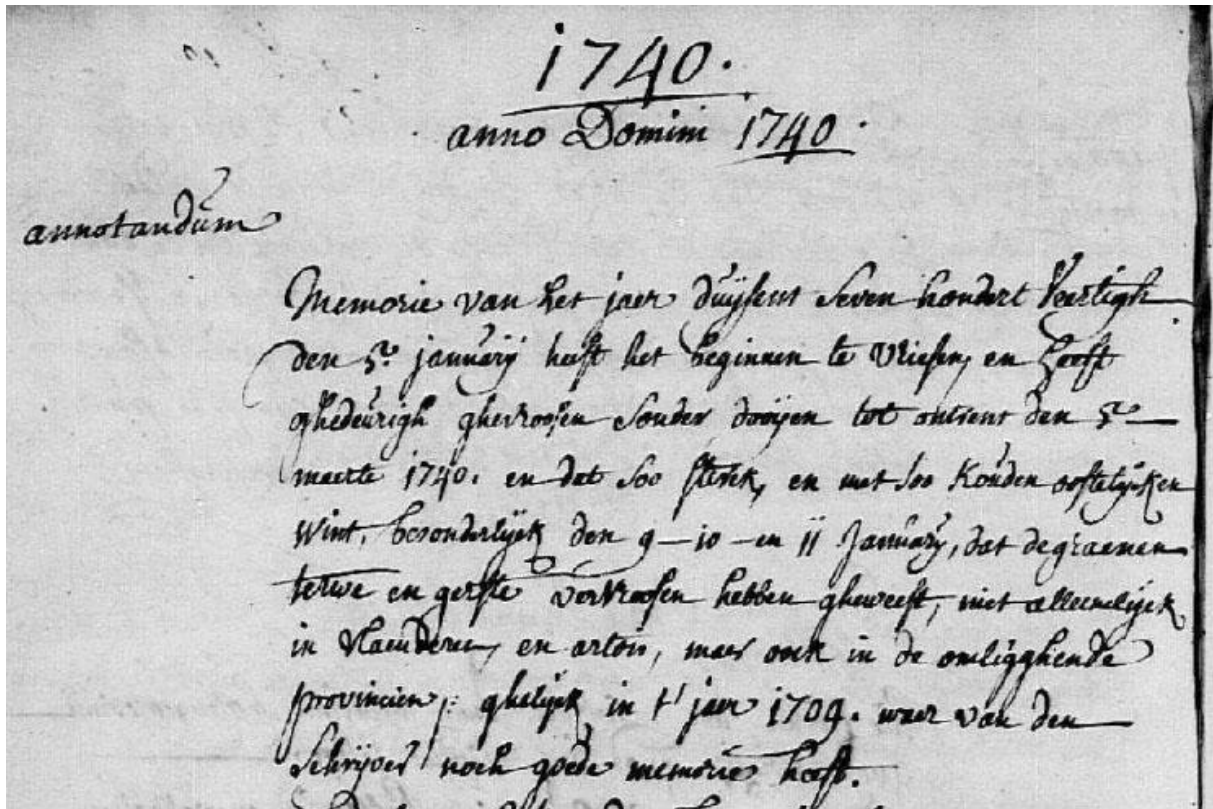 1740.
anno Domini 1740.
annotandum
Memorie van het jaer duijsent seven hondert veertigh
den 5e january heeft het beginnen te vriesen, en heeft
ghedeurigh ghevrosen sonder dooijen tot ontrent den 5e
maerte 1740. en dat soo sterk, en met soo kouden oostelijcken
wint, besonderlijck den 9-10-en 11 January, dat de graenen
terwe en gerste vervrosen hebben gheweest, niet alleenelijck
in vlaenderen, en artois, maer oock in de omligghende
provincien, ghelijck in t' jaer 1709. waer van den
schrijver noch goede memorie heeft.